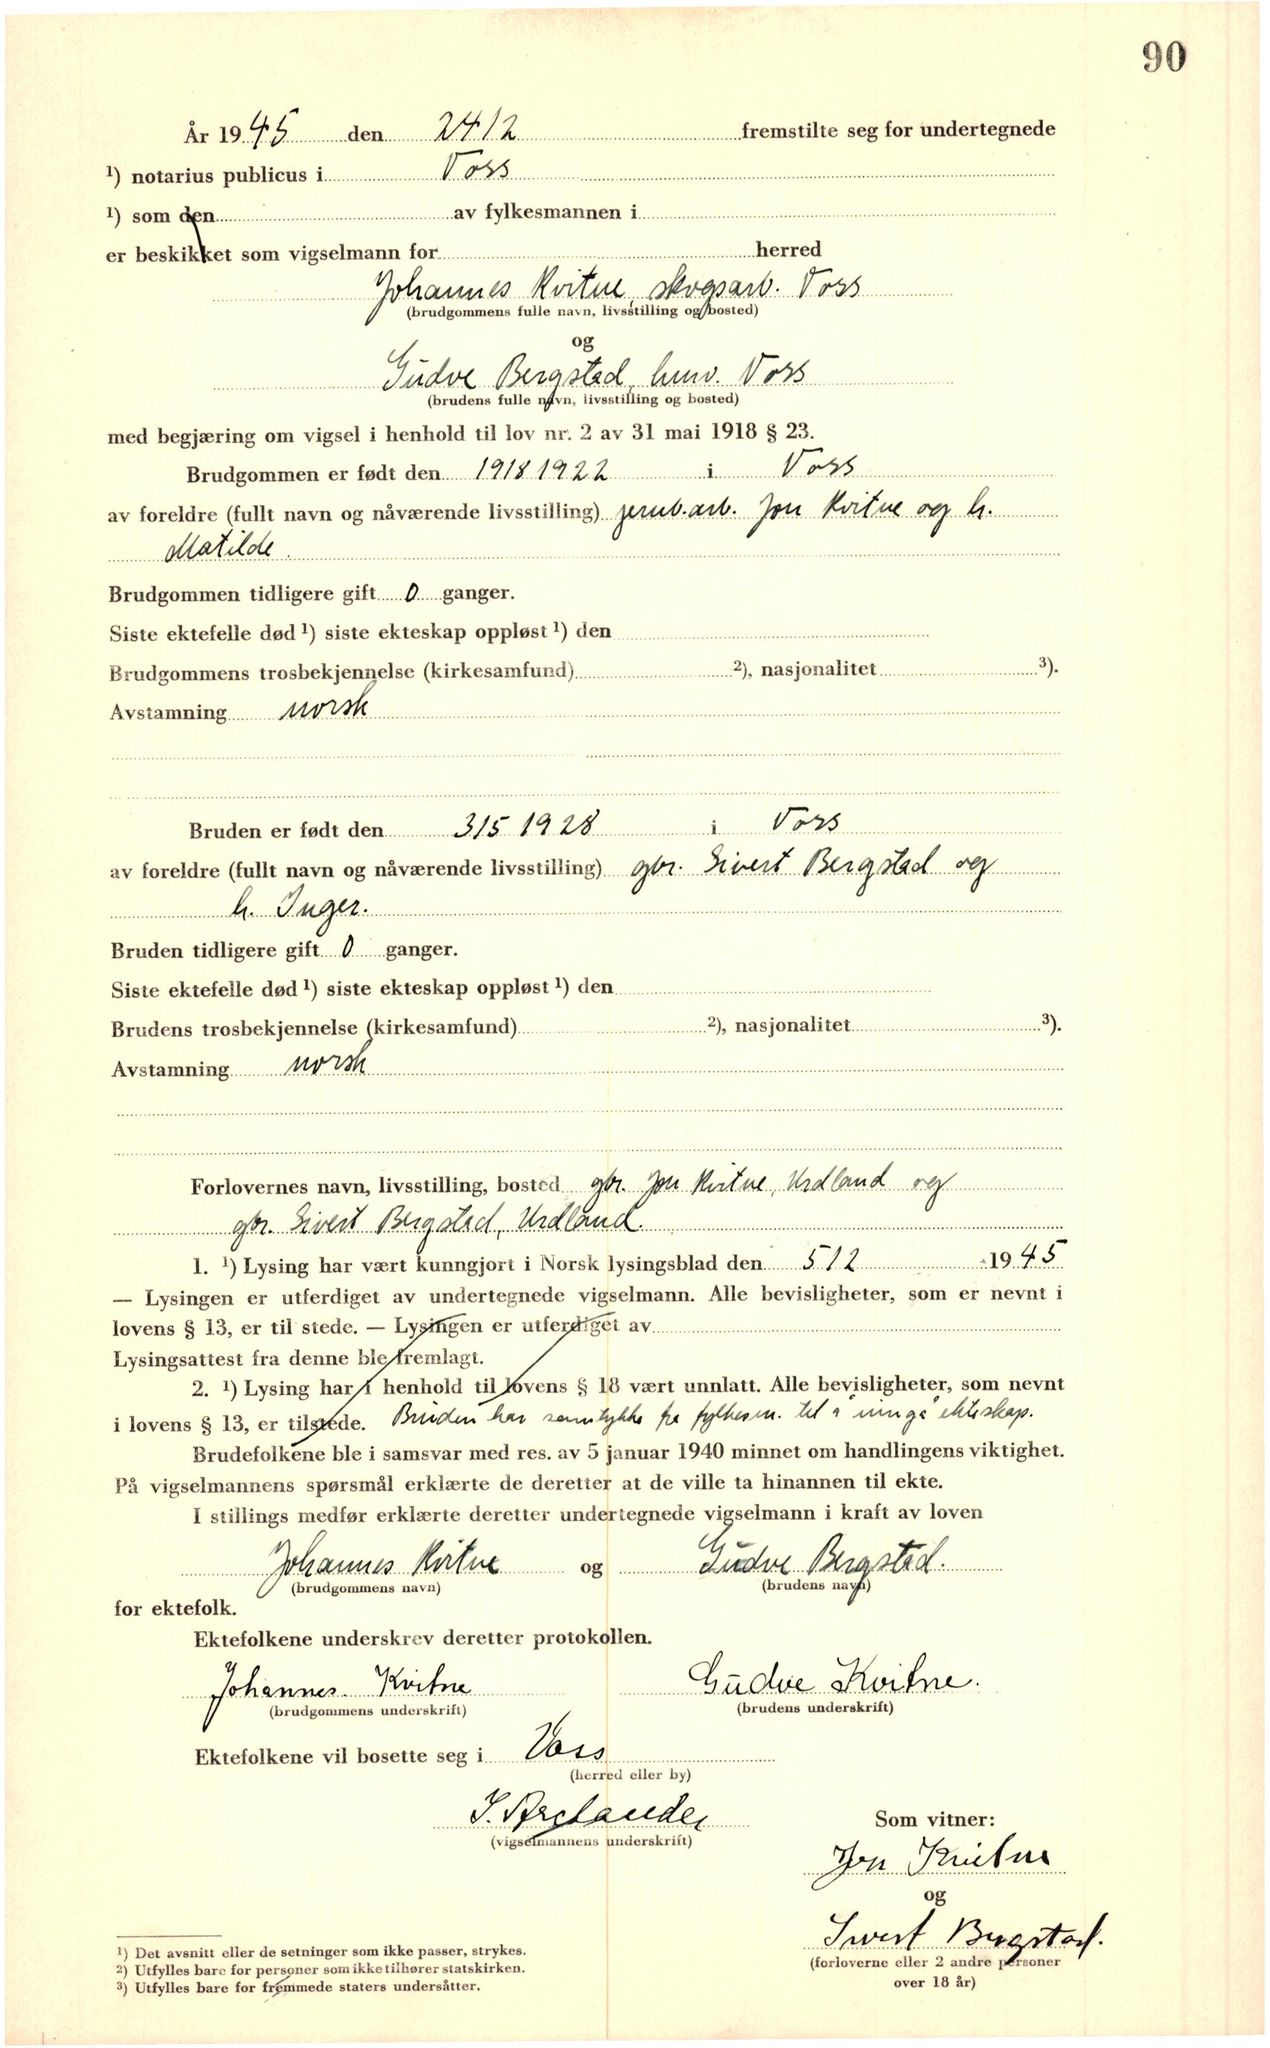 90
År 1945 den 24 12 fremstilte seg for undertegnede
¹) notarius publicus i Voss
¹) som den av fylkesmannen i
er beskikket som vigselmann for herred
Johannes Kvitne, skogsarb. Voss
(brudgommens fulle navn, livsstilling og bosted)
og
Gudve Bergstad, hmv. Voss
(brudens fulle navn, livsstilling og bosted)
med begjæring om vigsel i henhold til lov nr. 2 av 31 mai 1918 § 23.
Brudgommen er født den 19 8 1922 i Voss
av foreldre (fullt navn og nåværende livsstilling) jernb.arb. Jon Kvitne og h.
Matilde.
Brudgommen tidligere gift 0 ganger.
Siste ektefelle død ¹) siste ekteskap oppløst ¹) den
Brudgommens trosbekjennelse (kirkesamfund) ²), nasjonalitet ³).
Avstamning norsk
Bruden er født den 31 5 1928 i Voss
av foreldre (fullt navn og nåværende livsstilling) gbr. Sivert Bergstad og
h. Inger.
Bruden tidligere gift 0 ganger.
Siste ektefelle død ¹) siste ekteskap oppløst ¹) den
Brudens trosbekjennelse (kirkesamfund) ²), nasjonalitet ³).
Avstamning norsk
Forlovernes navn, livsstilling, bosted gbr. Jon Kvitne, Urdland og
gbr. Sivert Bergstad, Urdland.
1. ¹) Lysing har vært kunngjort i Norsk lysingsblad den 5 12 1945
— Lysingen er utferdiget av undertegnede vigselmann. Alle bevisligheter, som er nevnt i
lovens § 13, er til stede. — Lysingen er utferdiget av
Lysingsattest fra denne ble fremlagt.
2. ¹) Lysing har i henhold til lovens § 18 vært unnlatt. Alle bevisligheter, som nevnt
i lovens § 13, er tilstede. Bruden har samtykke fra fylkesm. til å inngå ekteskap.
Brudefolkene ble i samsvar med res. av 5 januar 1940 minnet om handlingens viktighet.
På vigselmannens spørsmål erklærte de deretter at de ville ta hinannen til ekte.
I stillings medfør erklærte deretter undertegnede vigselmann i kraft av loven
Johannes Kvitne og Gudve Bergstad.
(brudgommens navn) (brudens navn)
for ektefolk.
Ektefolkene underskrev deretter protokollen.
Johannes Kvitne Gudve Kvitne.
(brudgommens underskrift) (brudens underskrift)
Ektefolkene vil bosette seg i Voss
(herred eller by)
(vigselmannens underskrift)
Som vitner:
Jon Kvitne
og
Sivert Bergstad.
(forloverne eller 2 andre personer
over 18 år)
¹) Det avsnitt eller de setninger som ikke passer, strykes.
²) Utfylles bare for personer som ikke tilhører statskirken.
³) Utfylles bare for fremmede staters undersåtter.